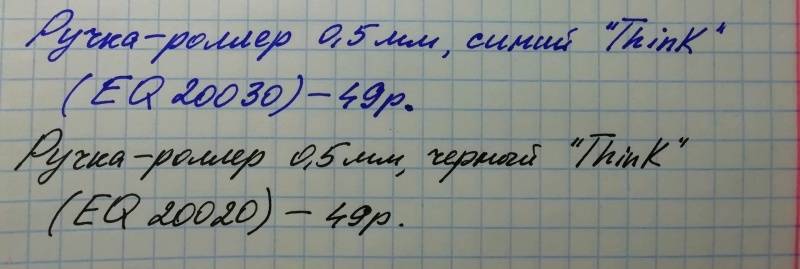 Ручка-роллер 0,5мм, синий "ThinK"
(EQ 20030) - 49р.
Ручка-роллер 0,5мм, черный "ThinK"
(EQ 20020) - 49р.